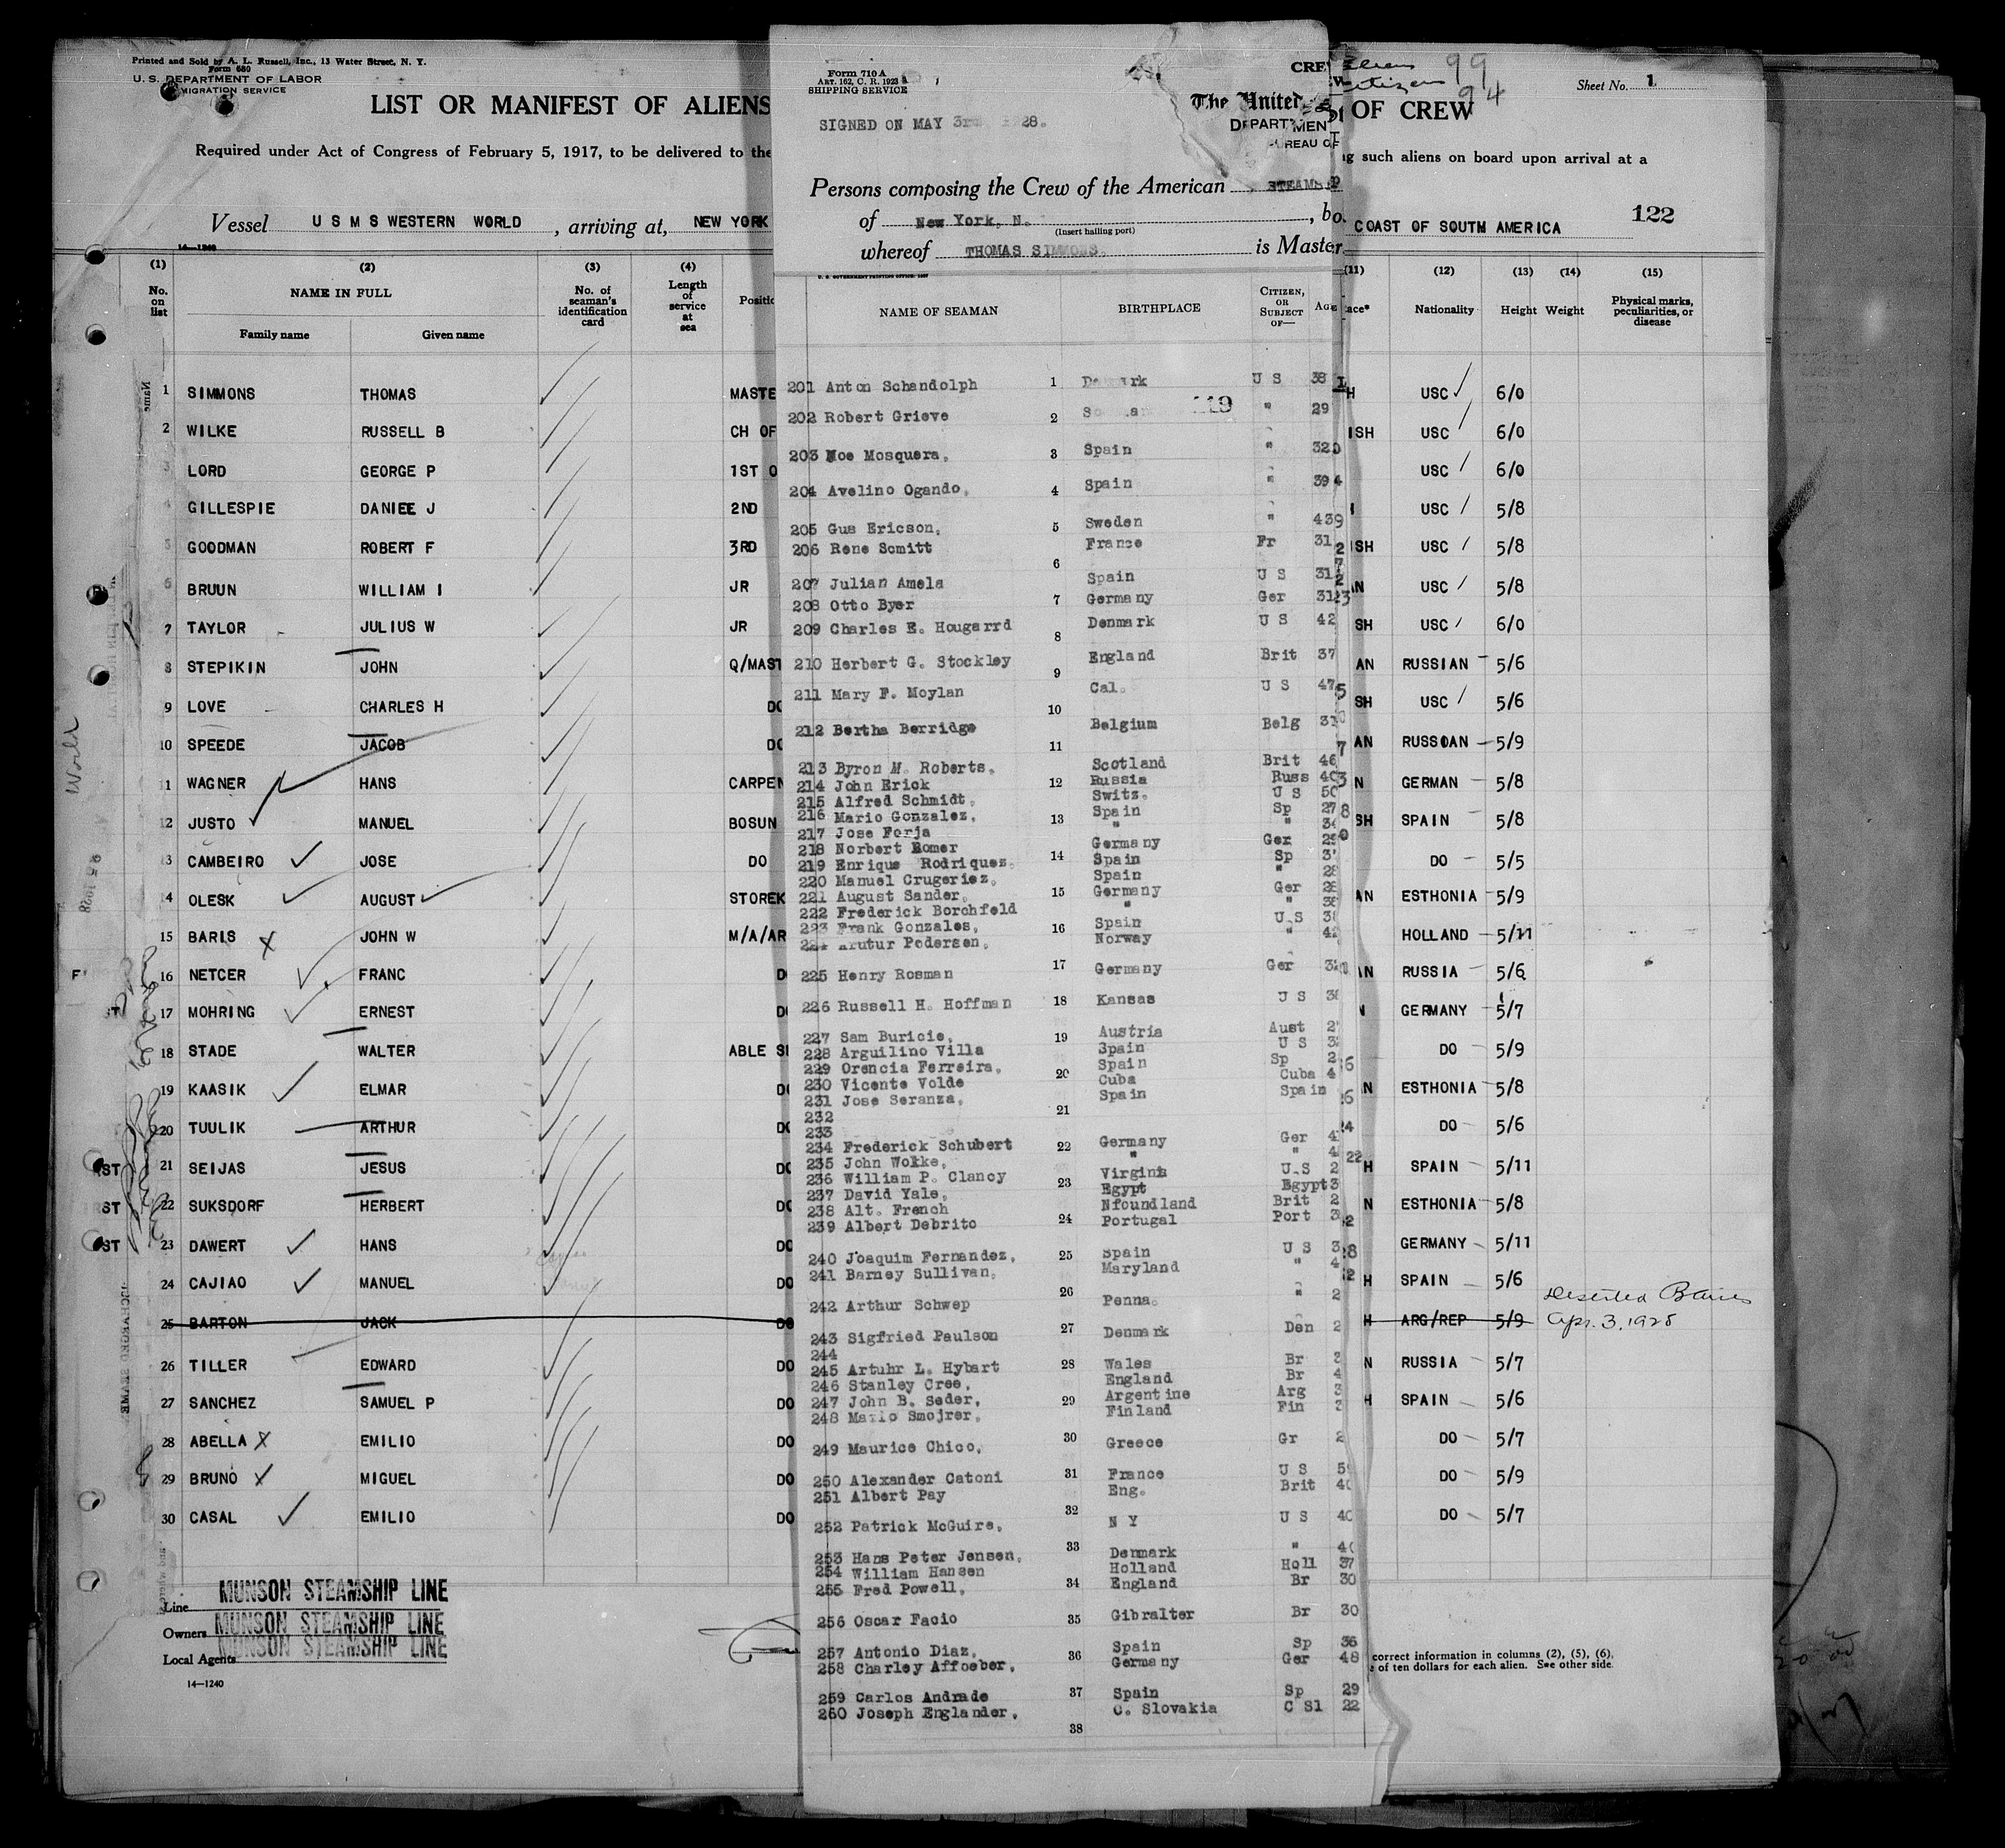 Printed and Sold by A. L. Russell, Inc., 13 Water Street, N. Y.
Form 680
U. S. DEPARTMENT OF LABOR
MIGRATION SERVICE
LIST OR MANIFEST OF ALIENS
Required under Act of Congress of February 5, 1917, to be delivered to the
Vessel U S M S WESTERN WORLD , arriving at, NEW YORK
14—1240
(1) (2) (3) (4)
No. on list
NAME IN FULL
Family name Given name
No. of seaman's identification card
Length of service at sea
Positio
1 SIMMONS THOMAS MASTE
2 WILKE RUSSELL B CH OF
3 LORD GEORGE P 1ST O
4 GILLESPIE DANIEL J 2ND
5 GOODMAN ROBERT F 3RD
6 BRUUN WILLIAM I JR
7 TAYLOR JULIUS W JR
8 STEPIKIN JOHN Q/MAST
9 LOVE CHARLES H DO
10 SPEEDE JACOB DO
11 WAGNER HANS CARPEN
12 JUSTO MANUEL BOSUN
13 CAMBEIRO JOSE DO
14 OLESK AUGUST STOREK
15 BARIS JOHN W M/A/AR
16 NETCER FRANC D
17 MOHRING ERNEST D
18 STADE WALTER ABLE S
19 KAASIK ELMAR DO
20 TUULIK ARTHUR DO
21 SEIJAS JESUS DO
22 SUKSDORF HERBERT DO
23 DAWERT HANS DO
24 CAJIAO MANUEL DO
25 BARTON JACK DO
26 TILLER EDWARD DO
27 SANCHEZ SAMUEL P DO
28 ABELLA EMILIO DO
29 BRUNO MIGUEL DO
30 CASAL EMILIO DO
Line MUNSON STEAMSHIP LINE
Owners MUNSON STEAMSHIP LINE
Local Agents MUNSON STEAMSHIP LINE
14—1240
Form 710 A
ART. 162, C. R. 1923
SHIPPING SERVICE
SIGNED ON MAY 3rd 28.
CRE
The United
DEPARTMEN
REAU OF
Persons composing the Crew of the American STEAMS
of New York, N. , bo
(Insert hailing port)
whereof THOMAS SIMMONS. is Master
U. S. GOVERNMENT PRINTING OFFICE: 1927
NAME OF SEAMAN BIRTHPLACE CITIZEN, OR SUBJECT OF— Age
201 Anton Schandolph 1 Denmark U S 38
119
202 Robert Grieve 2 " 29
203 Noe Mosquera, 3 Spain " 32
204 Avelino Ogando, 4 Spain " 39
205 Gus Ericson, 5 Sweden " 43
206 Rene Scmitt France Fr 31
6
207 Julian Amela Spain U S 31
208 Otto Byer 7 Germany Ger 31
209 Charles E. Hougarrd 8 Denmark U S 42
210 Herbert G. Stockley 9 England Brit 37
211 Mary F. Moylan 10 Cal. U S 47
212 Bertha Berridge 11 Belgium Belg 31
213 Byron M. Roberts, Scotland Brit 46
214 John Erick 12 Russia Russ 40
215 Alfred Schmidt, Switz. U S 50
216 Mario Gonzalez, 13 Spain Sp 27
217 Jose Forja " "
218 Norbert Homer Germany Ger
219 Enrique Rodriques. 14 Spain Sp
220 Manuel Crugeriez, Spain "
221 August Sander, 15 Germany Ger
222 Frederick Borchfeld " "
223 Frank Gonzales, 16 Spain U.S
224 Arutur Pedersen, Norway "
225 Henry Rosman 17 Germany Ger
226 Russell H. Hoffman 18 Kansas U S
227 Sam Buricie, 19 Austria Aust
228 Arguilino Villa Spain U S
229 Orencia Ferreira, Spain Sp
230 Vicente Volde 20 Cuba Cuba
231 Jose Seranza, Spain Spain
232 21
233
234 Frederick Schubert 22 Germany Ger
235 John Wokke, " "
236 William P. Clancy Virgina U.S
237 David Yale, 23 Egypt Egypt
238 Alt. French Nfoundland Brit
239 Albert Debrito 24 Portugal Port
240 Joaquim Fernandez, 25 Spain U S
241 Barney Sullivan, Maryland "
242 Arthur Schwep 26 Penna. "
243 Sigfried Paulson 27 Denmark Den
244
245 Artuhr L. Hybart 28 Wales Br
246 Stanley Cree, England Br
247 John B. Seder, 29 Argentine Arg
248 Mario Smojrer, Finland Fin
249 Maurice Chico, 30 Greece Gr
250 Alexander Catoni 31 France U S
251 Albert Pay Eng. Brit
252 Patrick McGuire, 32 N Y U S
253 Hans Peter Jensen, 33 Denmark "
254 William Hansen Holland Holl 37
255 Fred Powell, 34 England Br 30
256 Oscar Facio 35 Gibralter Br 30
257 Antonio Diaz, 36 Spain Sp 36
258 Charley Affoeber, Germany Ger 48
259 Carlos Andrade 37 Spain Sp 29
260 Joseph Englander, C. Slovakia C Sl 22
38
99
94
Sheet No. 1
OF CREW
g such aliens on board upon arrival at a
COAST OF SOUTH AMERICA 122
(11) (12) (13) (14) (15)
ace* Nationality Height Weight Physical marks, peculiarities, or disease
H USC 6/0
ISH USC 6/0
USC 6/0
USC 5/8
ISH USC 5/8
AN USC 5/8
SH USC 6/0
AN RUSSIAN 5/6
SH USC 5/6
AN RUSSOAN 5/9
N GERMAN 5/8
SH SPAIN 5/8
DO 5/5
AN ESTHONIA 5/9
HOLLAND 5/11
AN RUSSIA 5/6
N GERMANY 5/7
DO 5/9
N ESTHONIA 5/8
DO 5/6
H SPAIN 5/11
N ESTHONIA 5/8
GERMANY 5/11
H SPAIN 5/6
Deserted BAires
H ARG/REP 5/9 Apr. 3, 1928
N RUSSIA 5/7
H SPAIN 5/6
DO 5/7
DO 5/9
DO 5/7
correct information in columns (2), (5), (6),
of ten dollars for each alien. See other side.